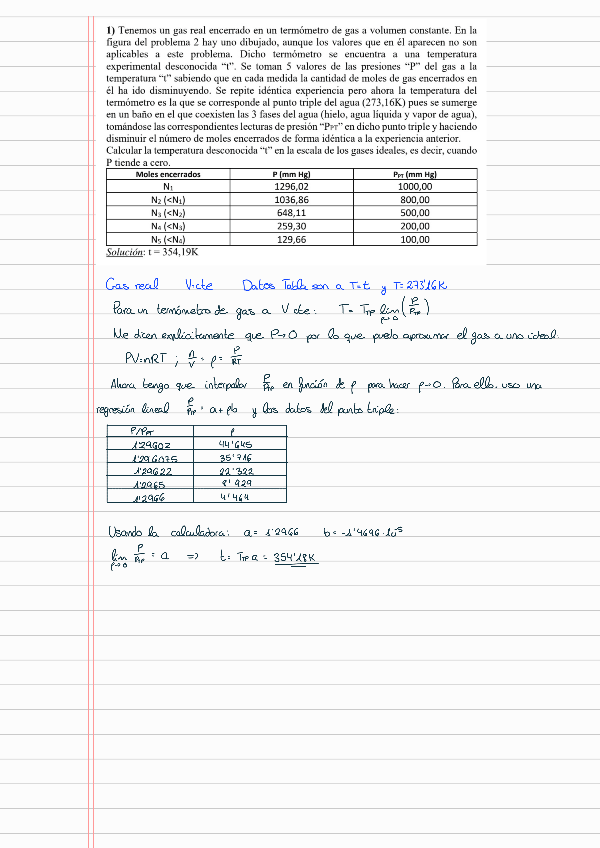 1) Tenemos un gas real encerrado en un termómetro de gas a volumen constante. En la
figura del problema 2 hay uno dibujado, aunque los valores que en él aparecen no son
aplicables a este problema. Dicho termómetro se encuentra a una temperatura
experimental desconocida “t”. Se toman 5 valores de las presiones “P” del gas a la
temperatura “t” sabiendo que en cada medida la cantidad de moles de gas encerrados en
él ha ido disminuyendo. Se repite idéntica experiencia pero ahora la temperatura del
termómetro es la que se corresponde al punto triple del agua (273,16K) pues se sumerge
en un baño en el que coexisten las 3 fases del agua (hielo, agua líquida y vapor de agua),
tomándose las correspondientes lecturas de presión “PPT” en dicho punto triple y haciendo
disminuir el número de moles encerrados de forma idéntica a la experiencia anterior.
Calcular la temperatura desconocida “t” en la escala de los gases ideales, es decir, cuando
P tiende a cero.
Moles encerrados P (mm Hg) PPT (mm Hg)
N1 1296,02 1000,00
N2 (<N1) 1036,86 800,00
N3 (<N2) 648,11 500,00
N4 (<N3) 259,30 200,00
N5 (<N4) 129,66 100,00
Solución: t = 354,19K
Gas real V=cte Datos Tabla son a T=t y T=273'16K
Para un termómetro de gas a V cte: T = TTP lim ρ→0 (P/PTP)
Me dicen explícitamente que P→0 por lo que puedo aproximar el gas a uno ideal:
PV=nRT ; n/V = ρ = P/RT
Ahora tengo que interpolar P/PTP en función de ρ para hacer ρ→0. Para ello, uso una
regresión lineal P/PTP = a+ρb y los datos del punto triple:
P/PPT ρ
1'29602 44'645
1'296075 35'716
1'29622 22'322
1'2965 8'929
1'2966 4'464
Usando la calculadora: a = 1'2966 b = -1'4696·10⁻⁵
lim ρ→0 P/PTP = a => t = TTP a = 354'18K